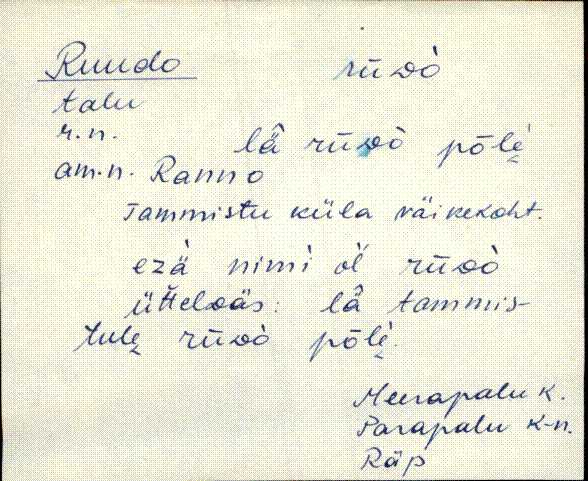 Ruudo rūᴅò
talu
r.n. lǟ rūᴅò pōlè̬
am.n. Ranno
Tammistu küla väikekoht.
ezä nimi öĺ rūᴅò
üt̄teldäs: lǟ tammis-
tule̬ rūᴅò pōlè̬.
Meerapalu k.
Parapalu k-n.
Räp